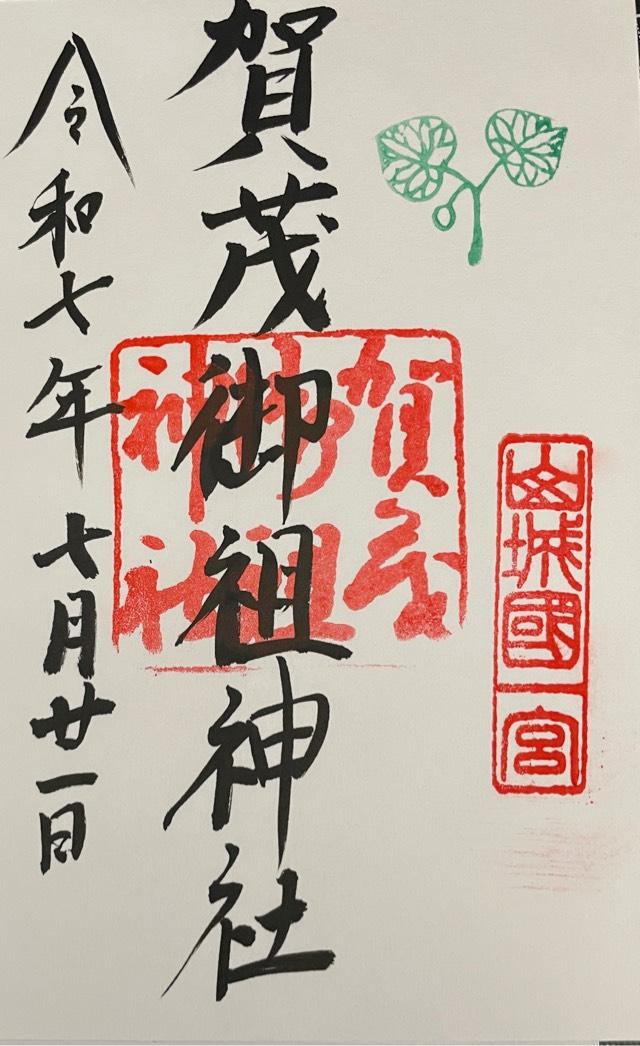 山城國一宮
賀茂御祖神社
賀茂御祖神社
令和七年七月廿一日